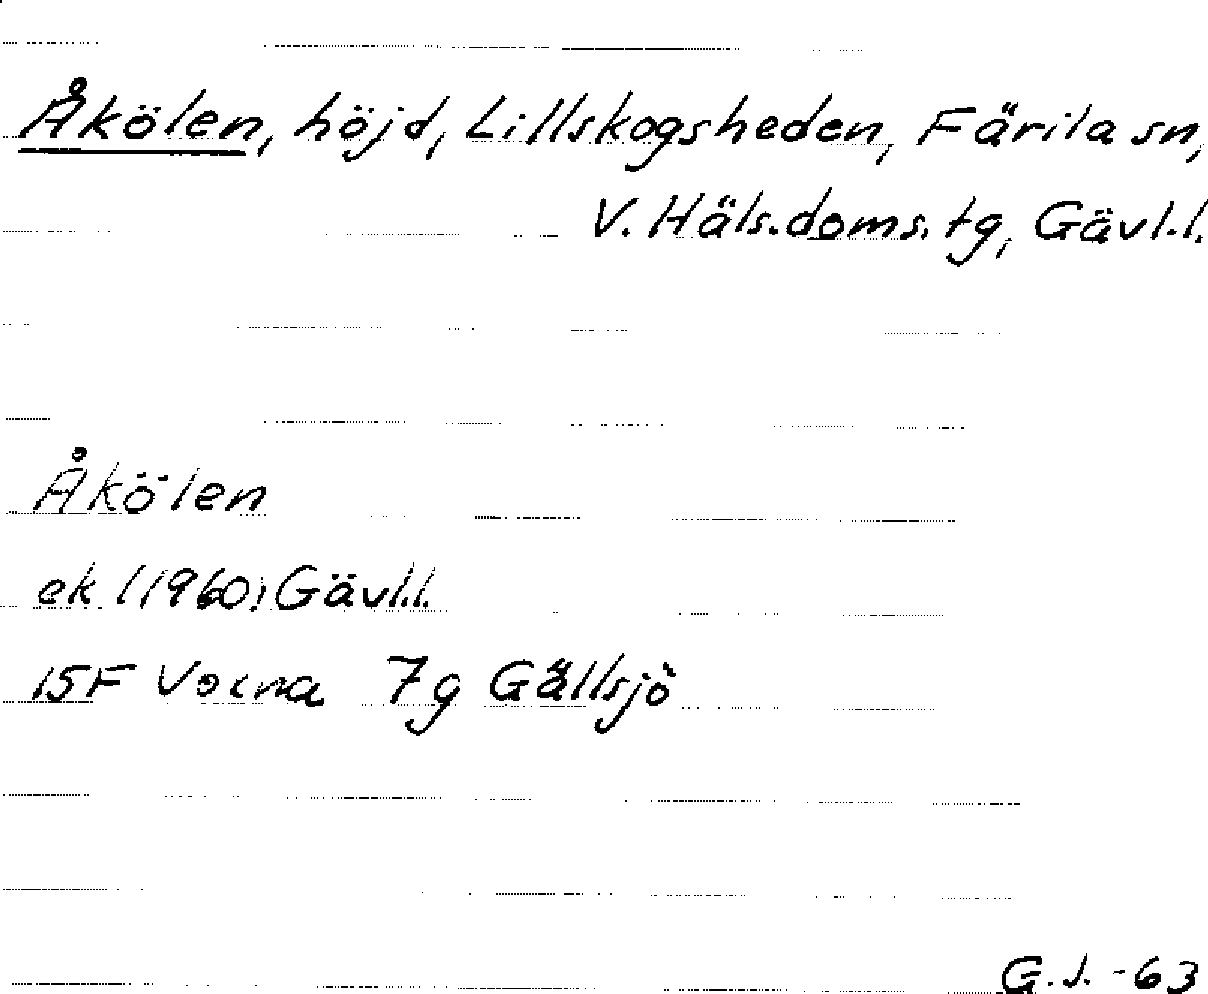 Åkölen, höjd, Lillskogsheden, Färila sn,
V. Häls.doms.tg, Gävl.l.
Åkölen
ek (1960) Gävl.l.
15F Voxna 7g Gällsjö
G.J. -63